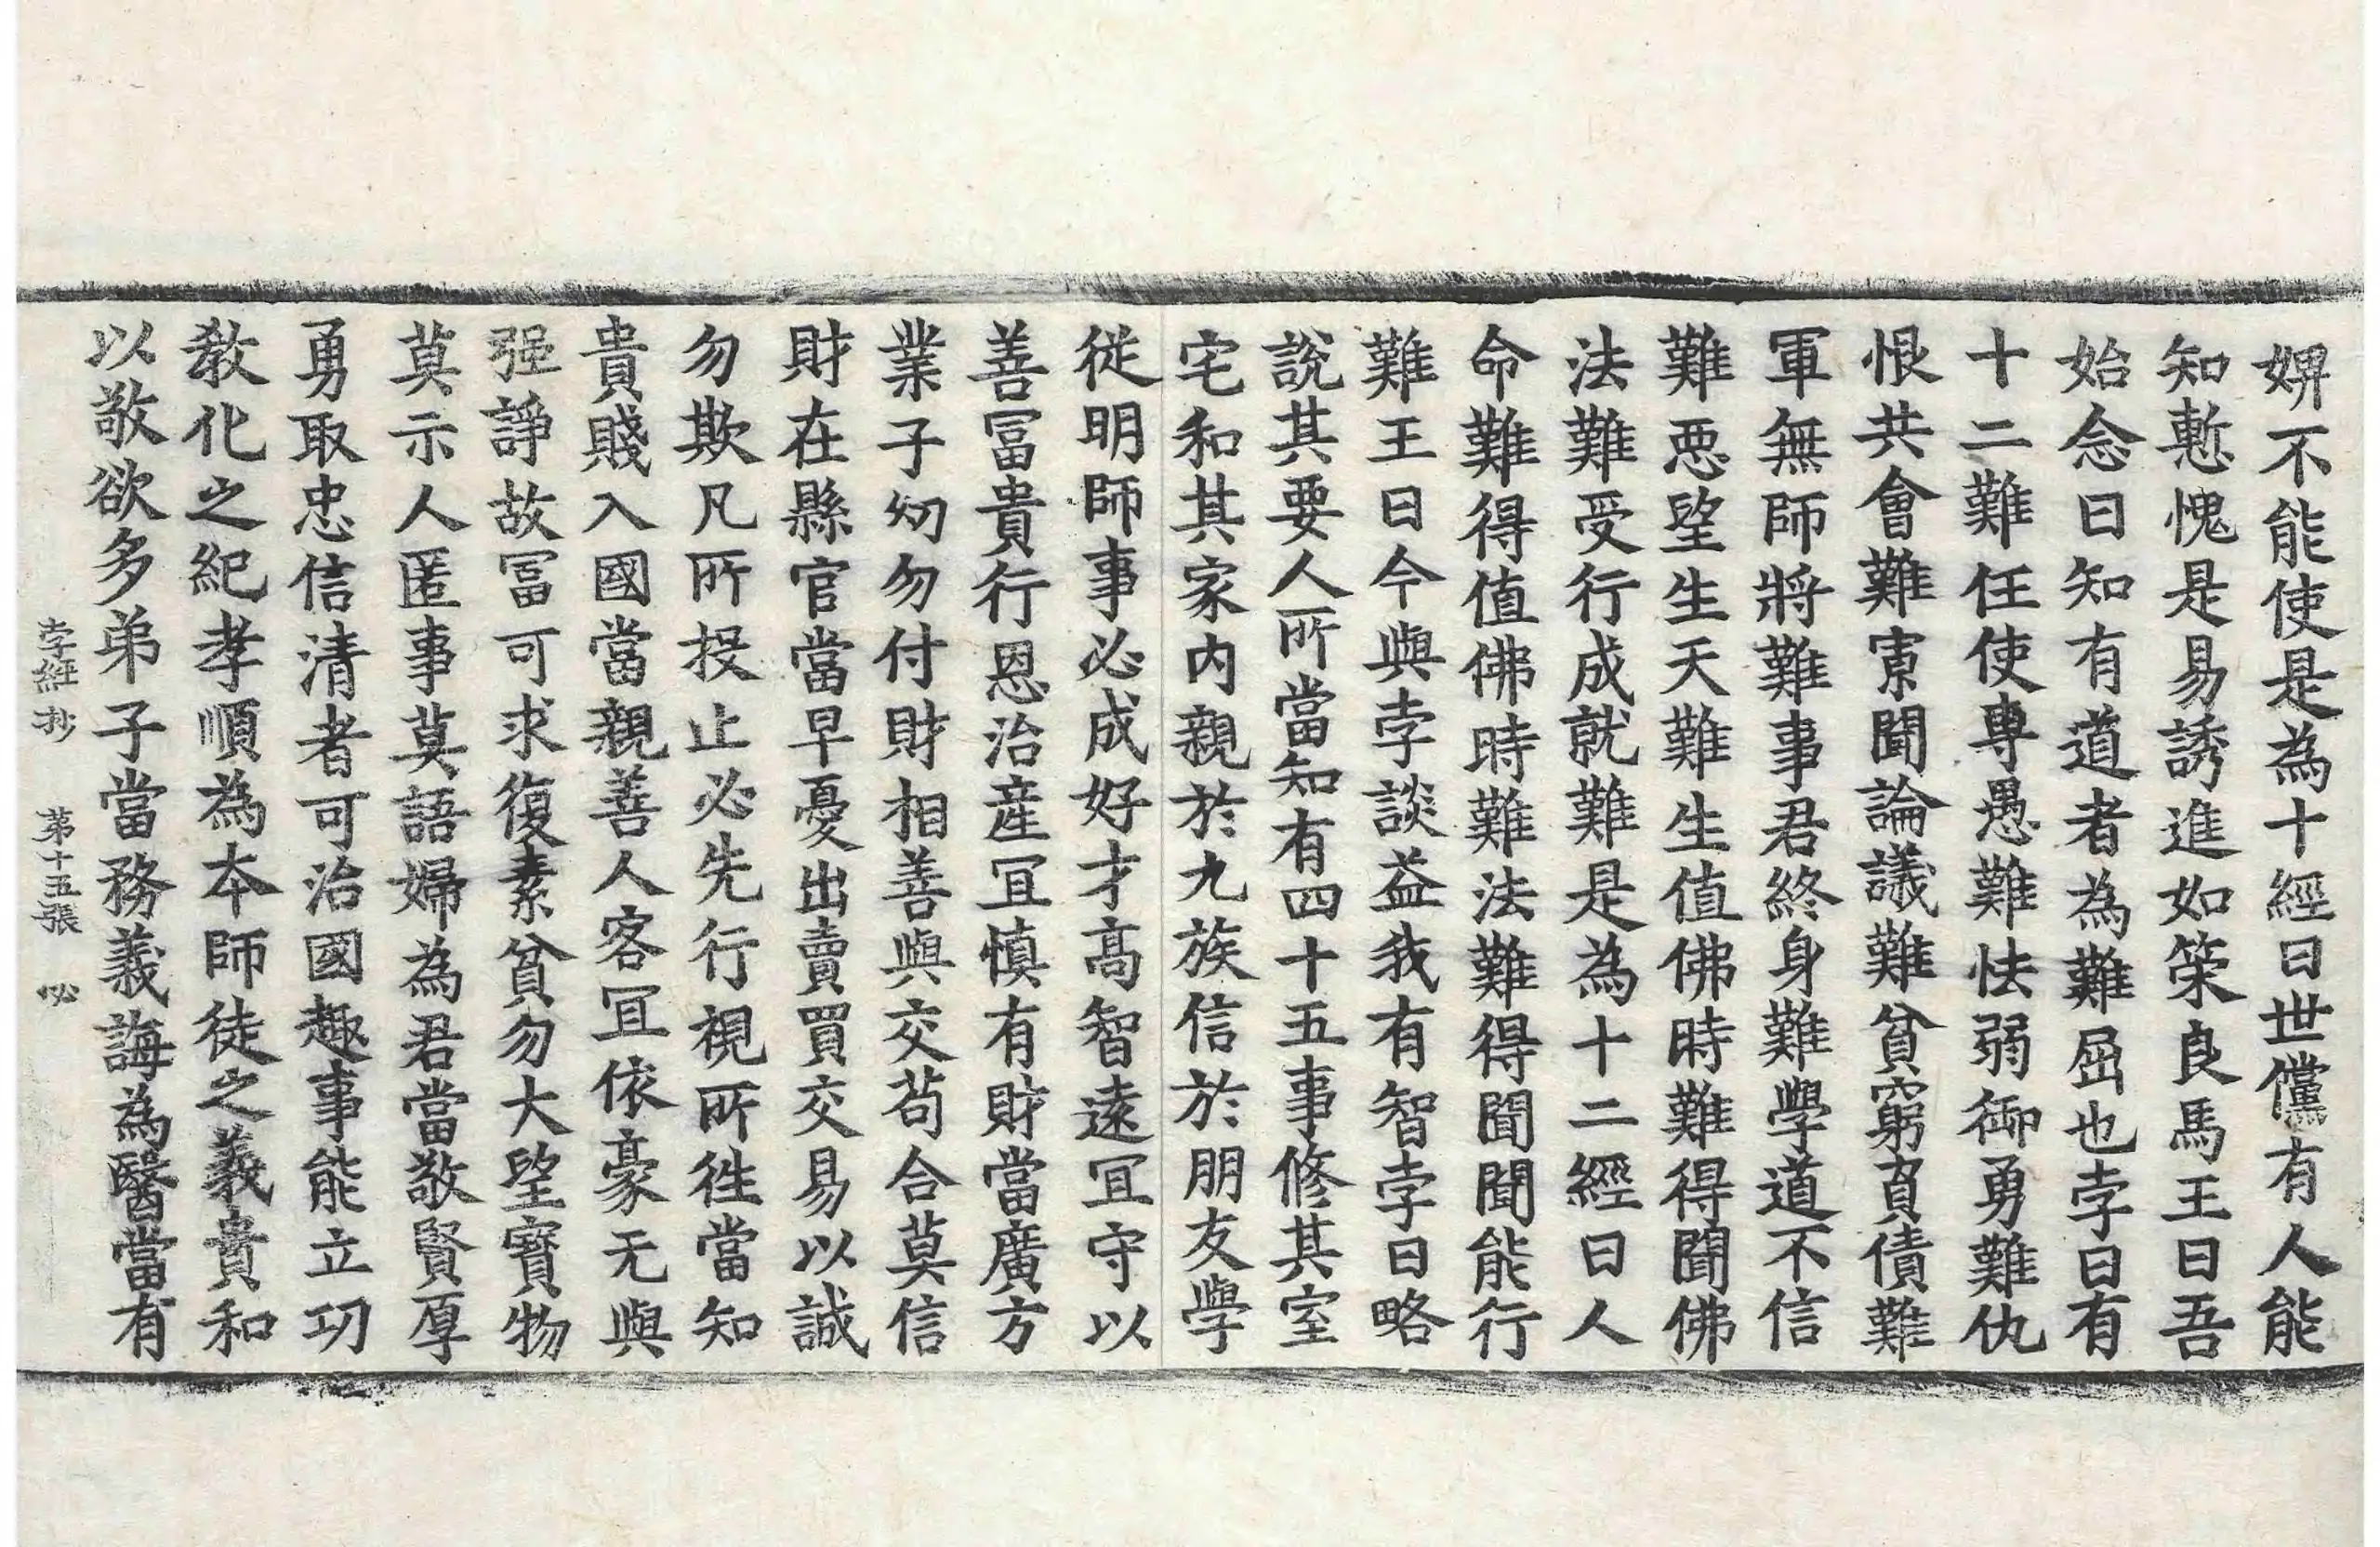 婢不能使是為十經曰世儻有人能
知慙愧是易誘進如䇿良馬王曰吾
始念曰知有道者為難屈也孛曰有
十二難任使專愚難怯弱御勇難仇
恨共會難𡩋聞論議難貧窮責債難
軍無師將難事君終身難學道不信
難惡望生天難生值佛時難得聞佛
法難受行成就難是為十二經曰人
命難得值佛時難法難得聞聞能行
難王曰今與孛談益我有智孛曰略
說其要人所當知有四十五事修其室
宅和其家內親於九族信於朋友學
從明師事必成好才高智遠冝守以
善冨貴行恩治產冝慎有財當廣方
業子幼勿付財相善與交苟合莫信
財在縣官當早憂出賣買交易以誠
勿欺凡所投止必先行視所徃當知
貴賤入國當親善人客冝依豪无與
强諍故冨可求復素貧勿大望寶物
莫示人匿事莫語婦為君當敬賢厚
勇取忠信清者可治國趣事能立功
教化之紀孝順為本師徒之義貴和
以敬欲多弟子當務義誨為醫當有
孛經抄 第十五張 必